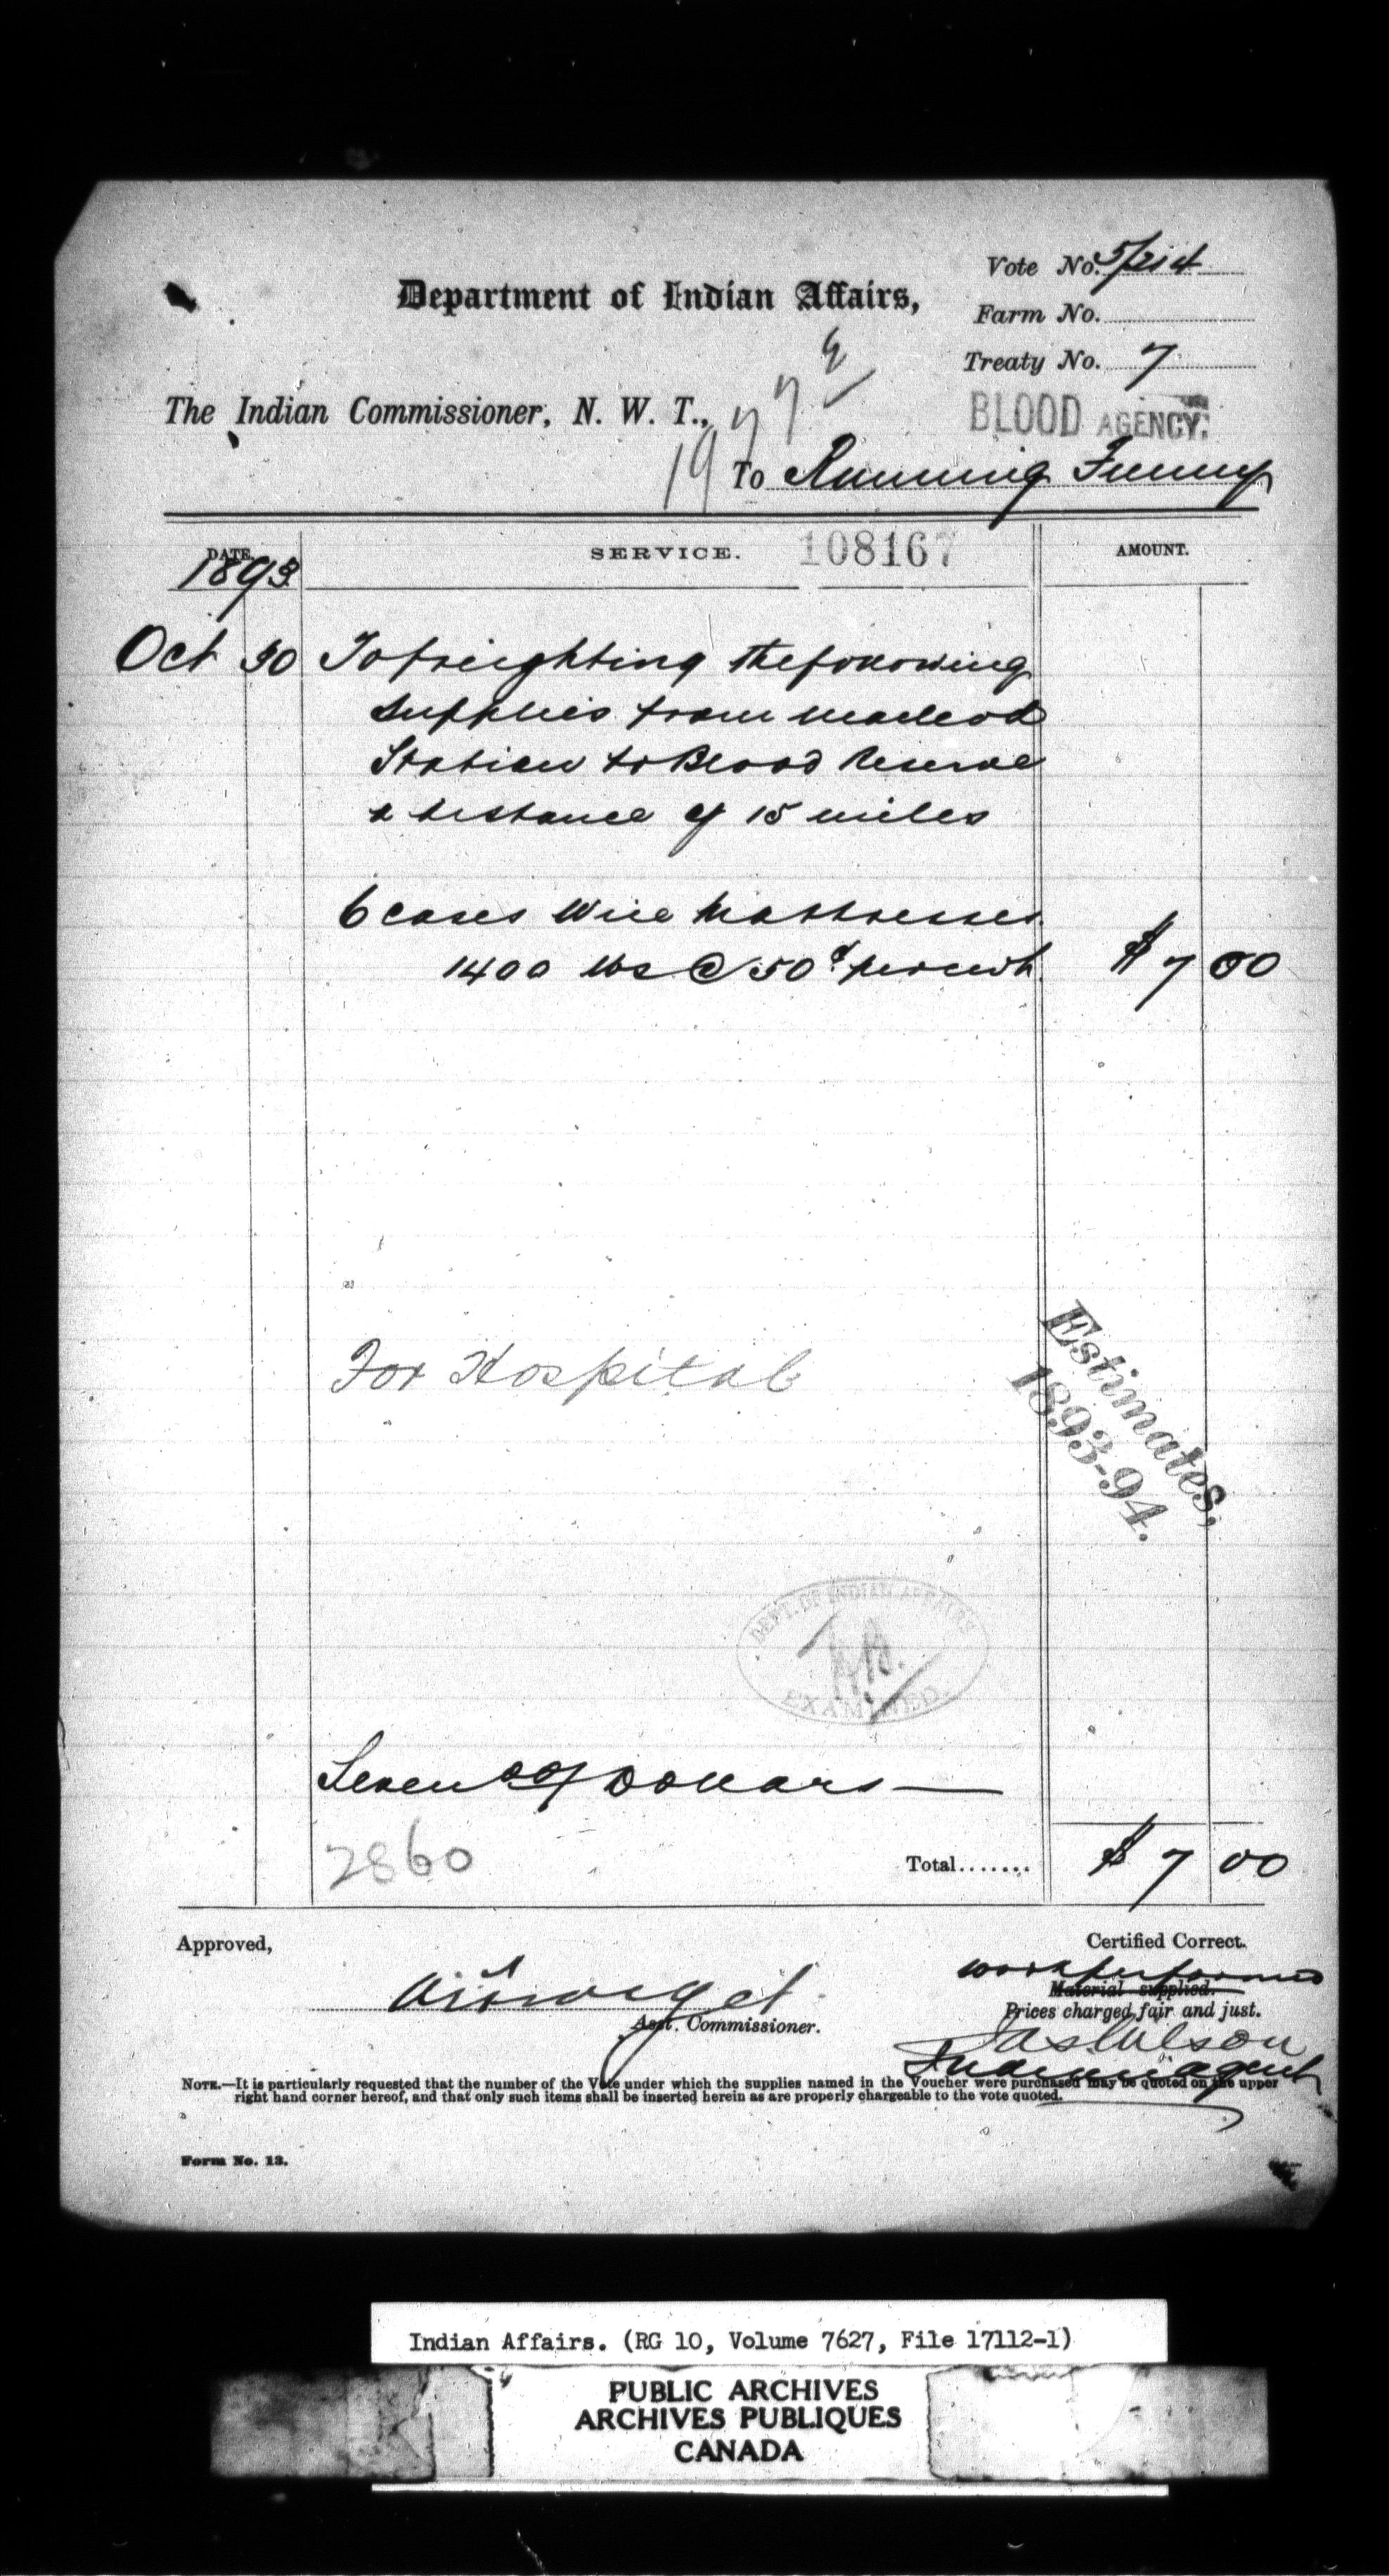 Vote No. 5/214
Department of Indian Affairs,
Farm No.
Treaty No. 7
The Indian Commissioner, N. W. T.,
BLOOD AGENCY.
To Running Funny
DATE. SERVICE. 108167 AMOUNT.
1893
Oct 30 To freighting the following
supplies from Macleod
Station to Blood Reserve
a distance of 15 miles
6 cases Wire Mattresses
1400 lbs @ 50c per cwt. $7 00
For Hospital
Estimates,
1893-94.
DEPT. OF INDIAN AFFAIRS
EXAMINED.
Seven 00/ Dollars
2860 Total....... $7 00
Approved, Certified Correct.
work performed
Material supplied.
Asst. Commissioner. Prices charged fair and just.
Jas Wilson
Indian Agent
NOTE.—It is particularly requested that the number of the Vote under which the supplies named in the Voucher were purchased may be quoted on the upper
right hand corner hereof, and that only such items shall be inserted herein as are properly chargeable to the vote quoted.
Form No. 13.
Indian Affairs. (RG 10, Volume 7627, File 17112-1)
PUBLIC ARCHIVES
ARCHIVES PUBLIQUES
CANADA